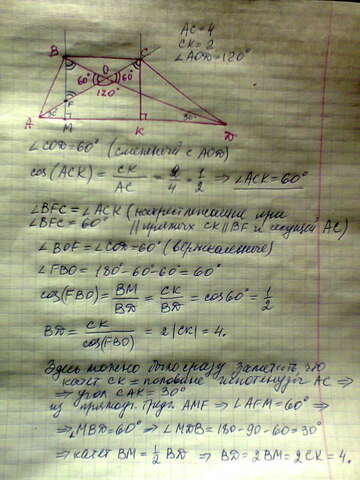 AC = 4
CK = 2
∠AOD = 120°
B
C
O
60°
60°
120°
F
A
M
K
30°
D
∠COD = 60° (смежный с AOD)
cos(ACK) = CK/AC = 2/4 = 1/2 ⇒ ∠ACK = 60°
∠BFC = ∠ACK (накрест лежащие при
∠BFC = 60° || прямых CK || BF и секущей AC)
∠BOF = ∠COD = 60° (вертикальные)
∠FBO = 180 - 60 - 60 = 60°
cos(FBO) = BM/BD = CK/BD = cos60° = 1/2
BD = CK/cos(FBO) = 2|CK| = 4.
Здесь можно было сразу заметить что
катет CK = половине гипотенузы AC ⇒
⇒ угол CAK = 30°
из прямоуг. треуг. AMF ⇒ ∠AFM = 60° ⇒
⇒ ∠MBD = 60° ⇒ ∠MDB = 180 - 90 - 60 = 30°
⇒ катет BM = 1/2 BD ⇒ BD = 2BM = 2CK = 4.